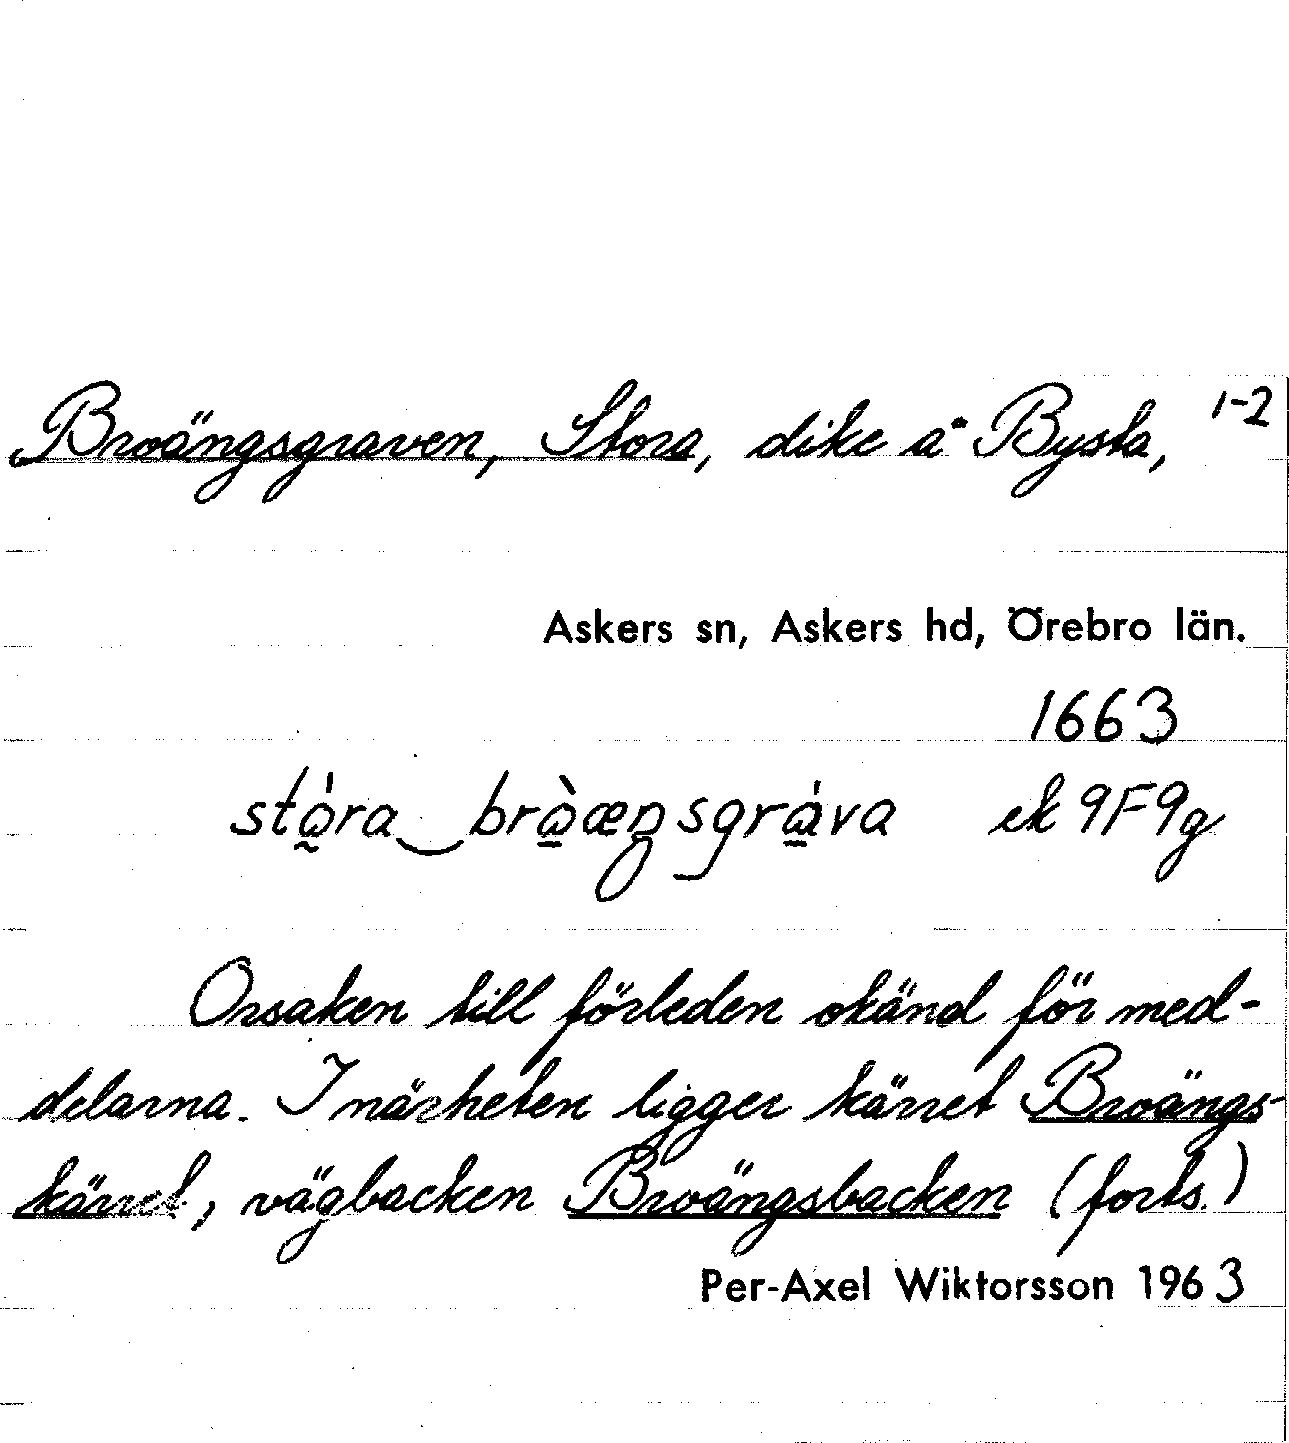 Broängsgraven, Stora, dike å Bysta, 1-2
Askers sn, Askers hd, Örebro län.
1663
ek 9F9g
Orsaken till förleden okänd för med-
delarna. I närheten ligger kärret Broängs-
kärret, vägbacken Broängsbacken (forts.)
Per-Axel Wiktorsson 1963